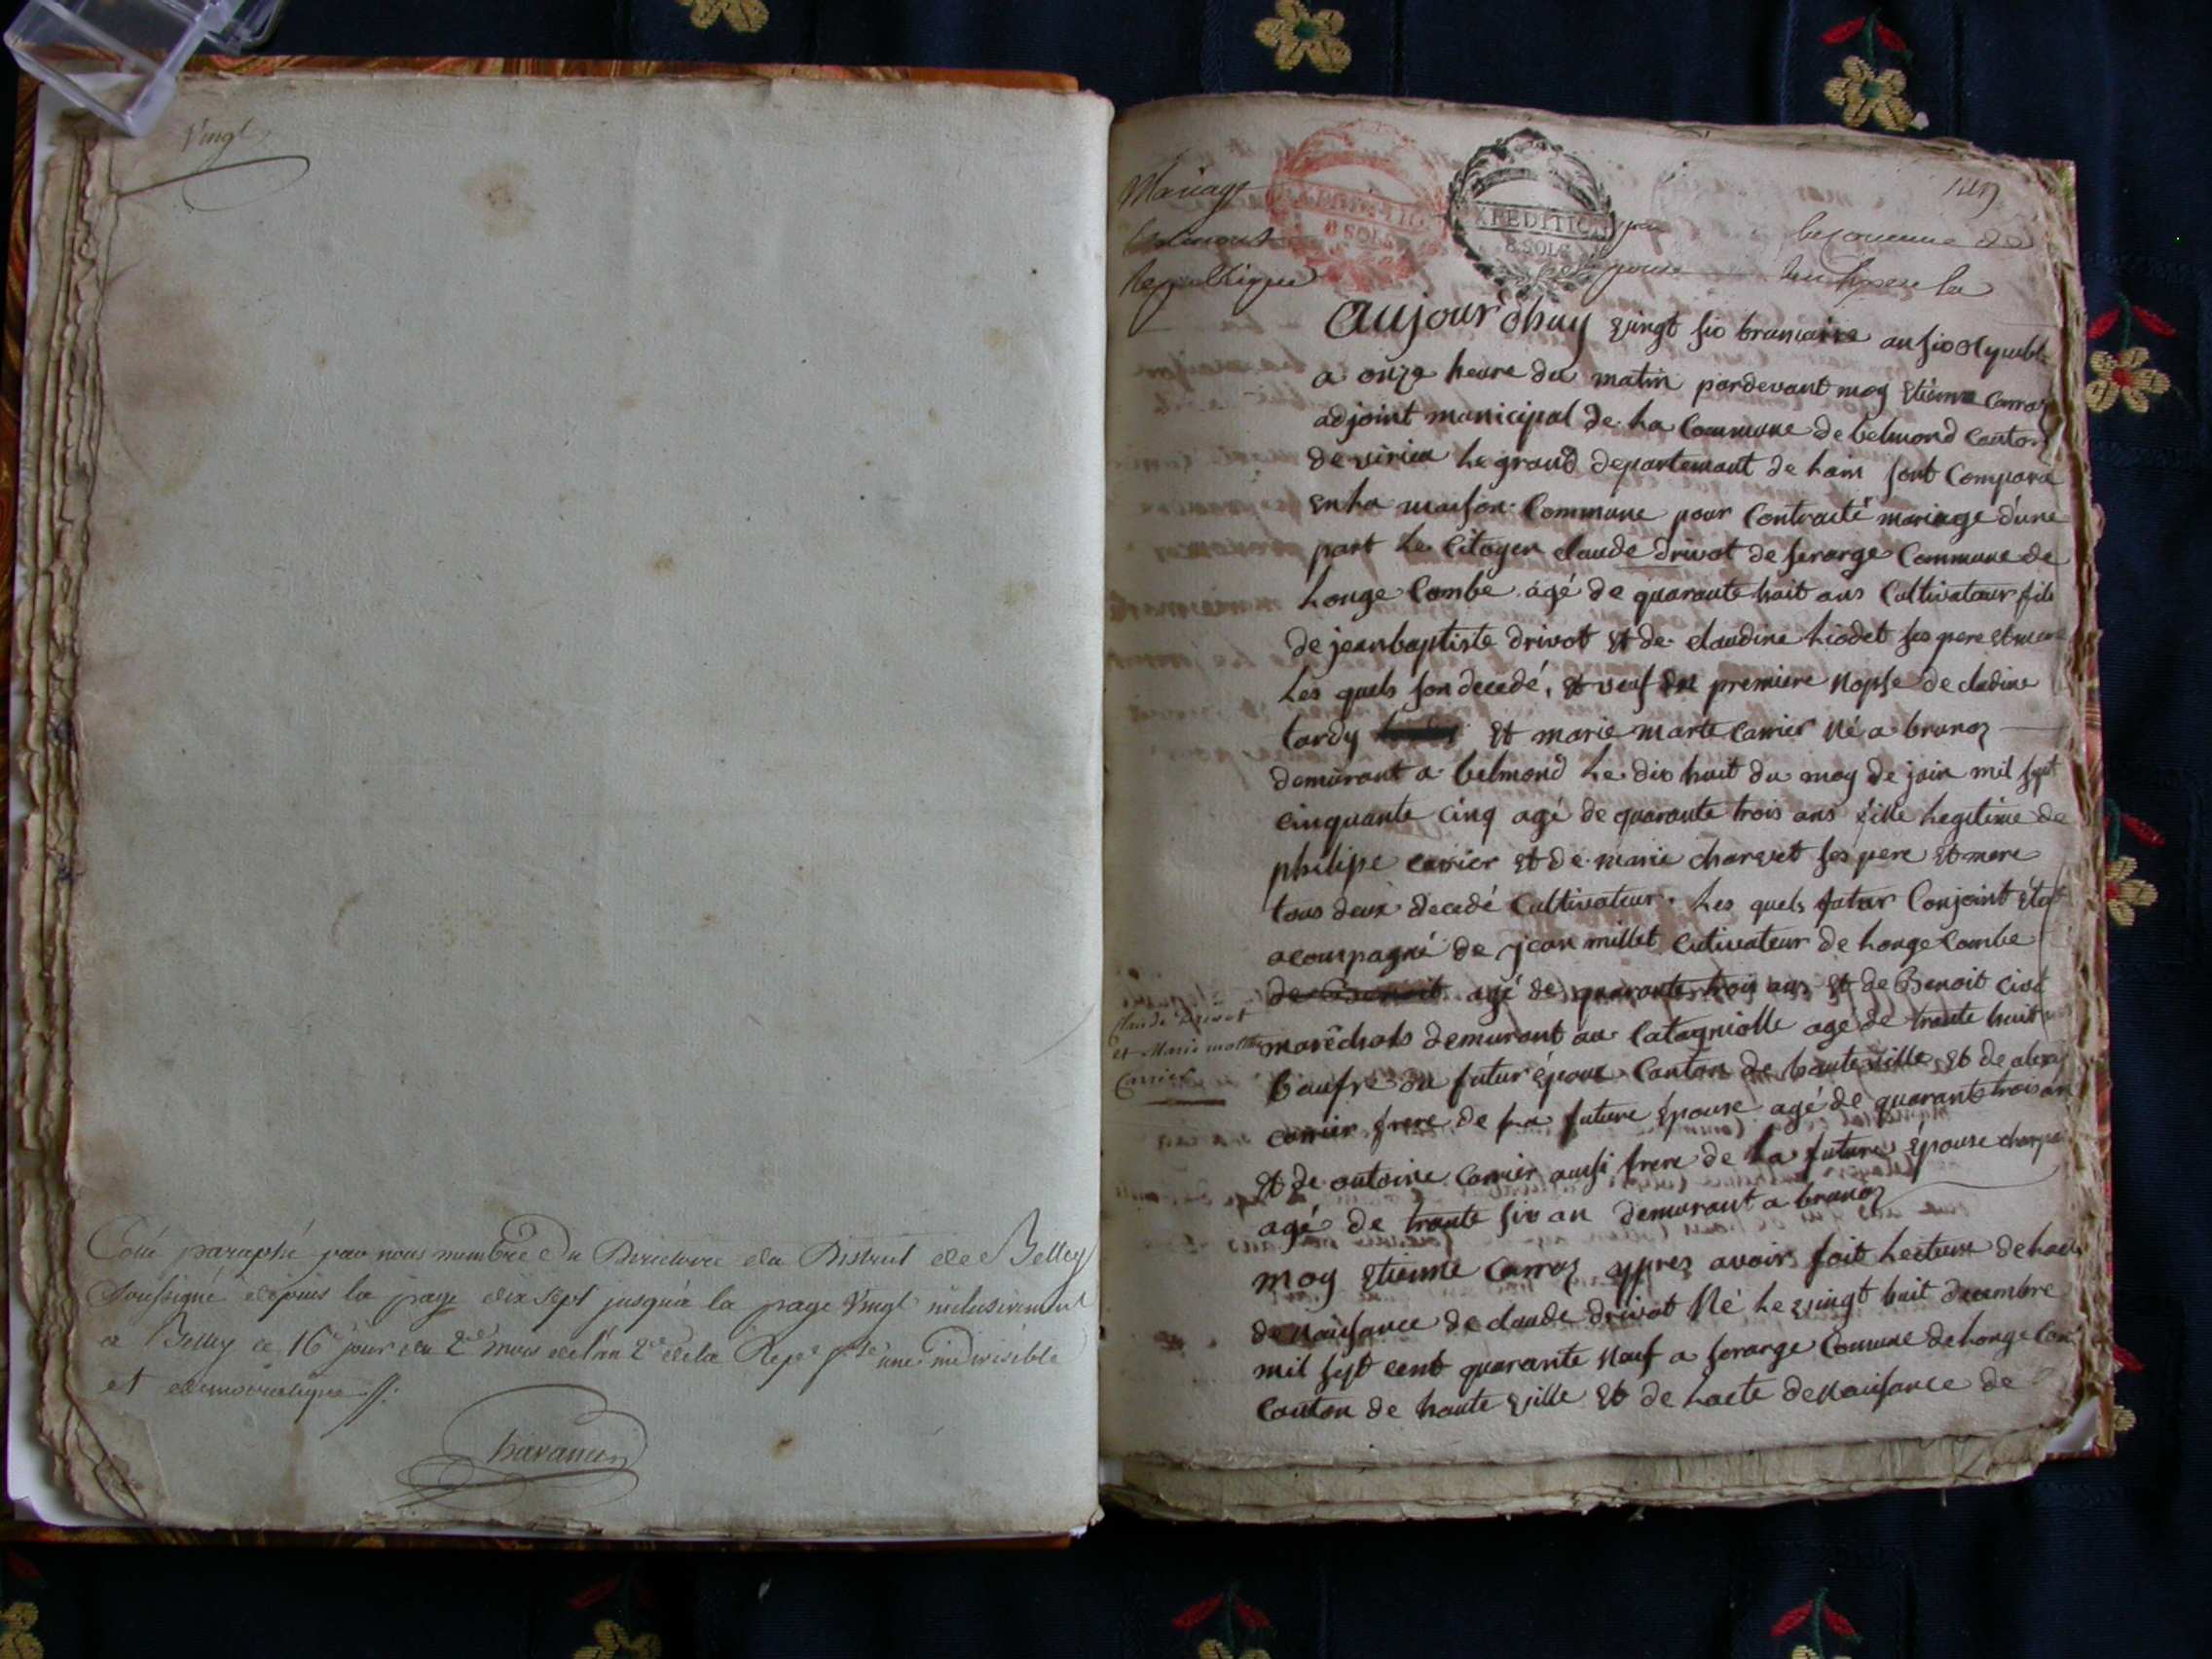 Vingt
Coté paraphé par nous membre du Directoire du District de Belley
Soussigné depuis la page dix sept jusqu'à la page Vingt inclusivement
a Belley ce 16e jour du 2e mois de l'an 2e de la Repe une indivisible
et democratique
Mariage
EXPEDITION
8 SOLS
EXPEDITION
8 SOLS
Republique
aujour'dhuy vingt six brumaire an six
a onze heure du matin pardevant moy Etienne Carraz
adjoint municipal de La Commune de belmond Canton
de virieu Le grand departemant de Lain sont Compara
en La maison Commune pour Contracté mariage d'une
part Le Citoyen claude drivot de serarge Commune de
Longe Combe agé de quarante huit ans Cultivataur fils
de jeanbaptiste drivot Et de claudine Liodet ses pere Et mere
Les quels son decedé, Et veuf de premiere Nopse de cladine
tardy Et marie marte Carrier Né a branaz
demurant a belmond Le dix huit du moy de juin mil sept
cinquante cinq agé de quarante trois ans fille Legitime de
philipe Carrier Et de marie charvet ses pere Et mere
tous deux decedé Cultivateur. Les quels futur Conjoint
acompagné de jean millet Cutivateur de Longe Combe
de Benoit agé de quarante trois ans Et de Benoit
Claude Drivot
et Marie marthe
Carrier
maréchals demurant au Catagniolle agé de trante huit
baufre du futur époux Canton de hauteville Et de
carrier frere de La future Epouse agé de quarant trois an
Et de antoine Carrier aussi frere de La future Epouse
agé de trante six an demurant a branaz
moy Etienne Carraz appres avoir fait Lecture de
de Naisance de claude drivot Né Le vingt huit decembre
mil sept cent quarante Nauf a serarge Comune de Longe
Canton de haute ville Et de Lacte de Naisance de